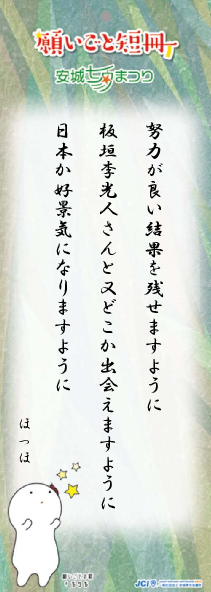 願いごと短冊
安城七夕まつり
努力が良い結果を残せますように
板垣李光人さんと又どこか出会えますように
日本か好景気になりますように
ほっほ
JCI